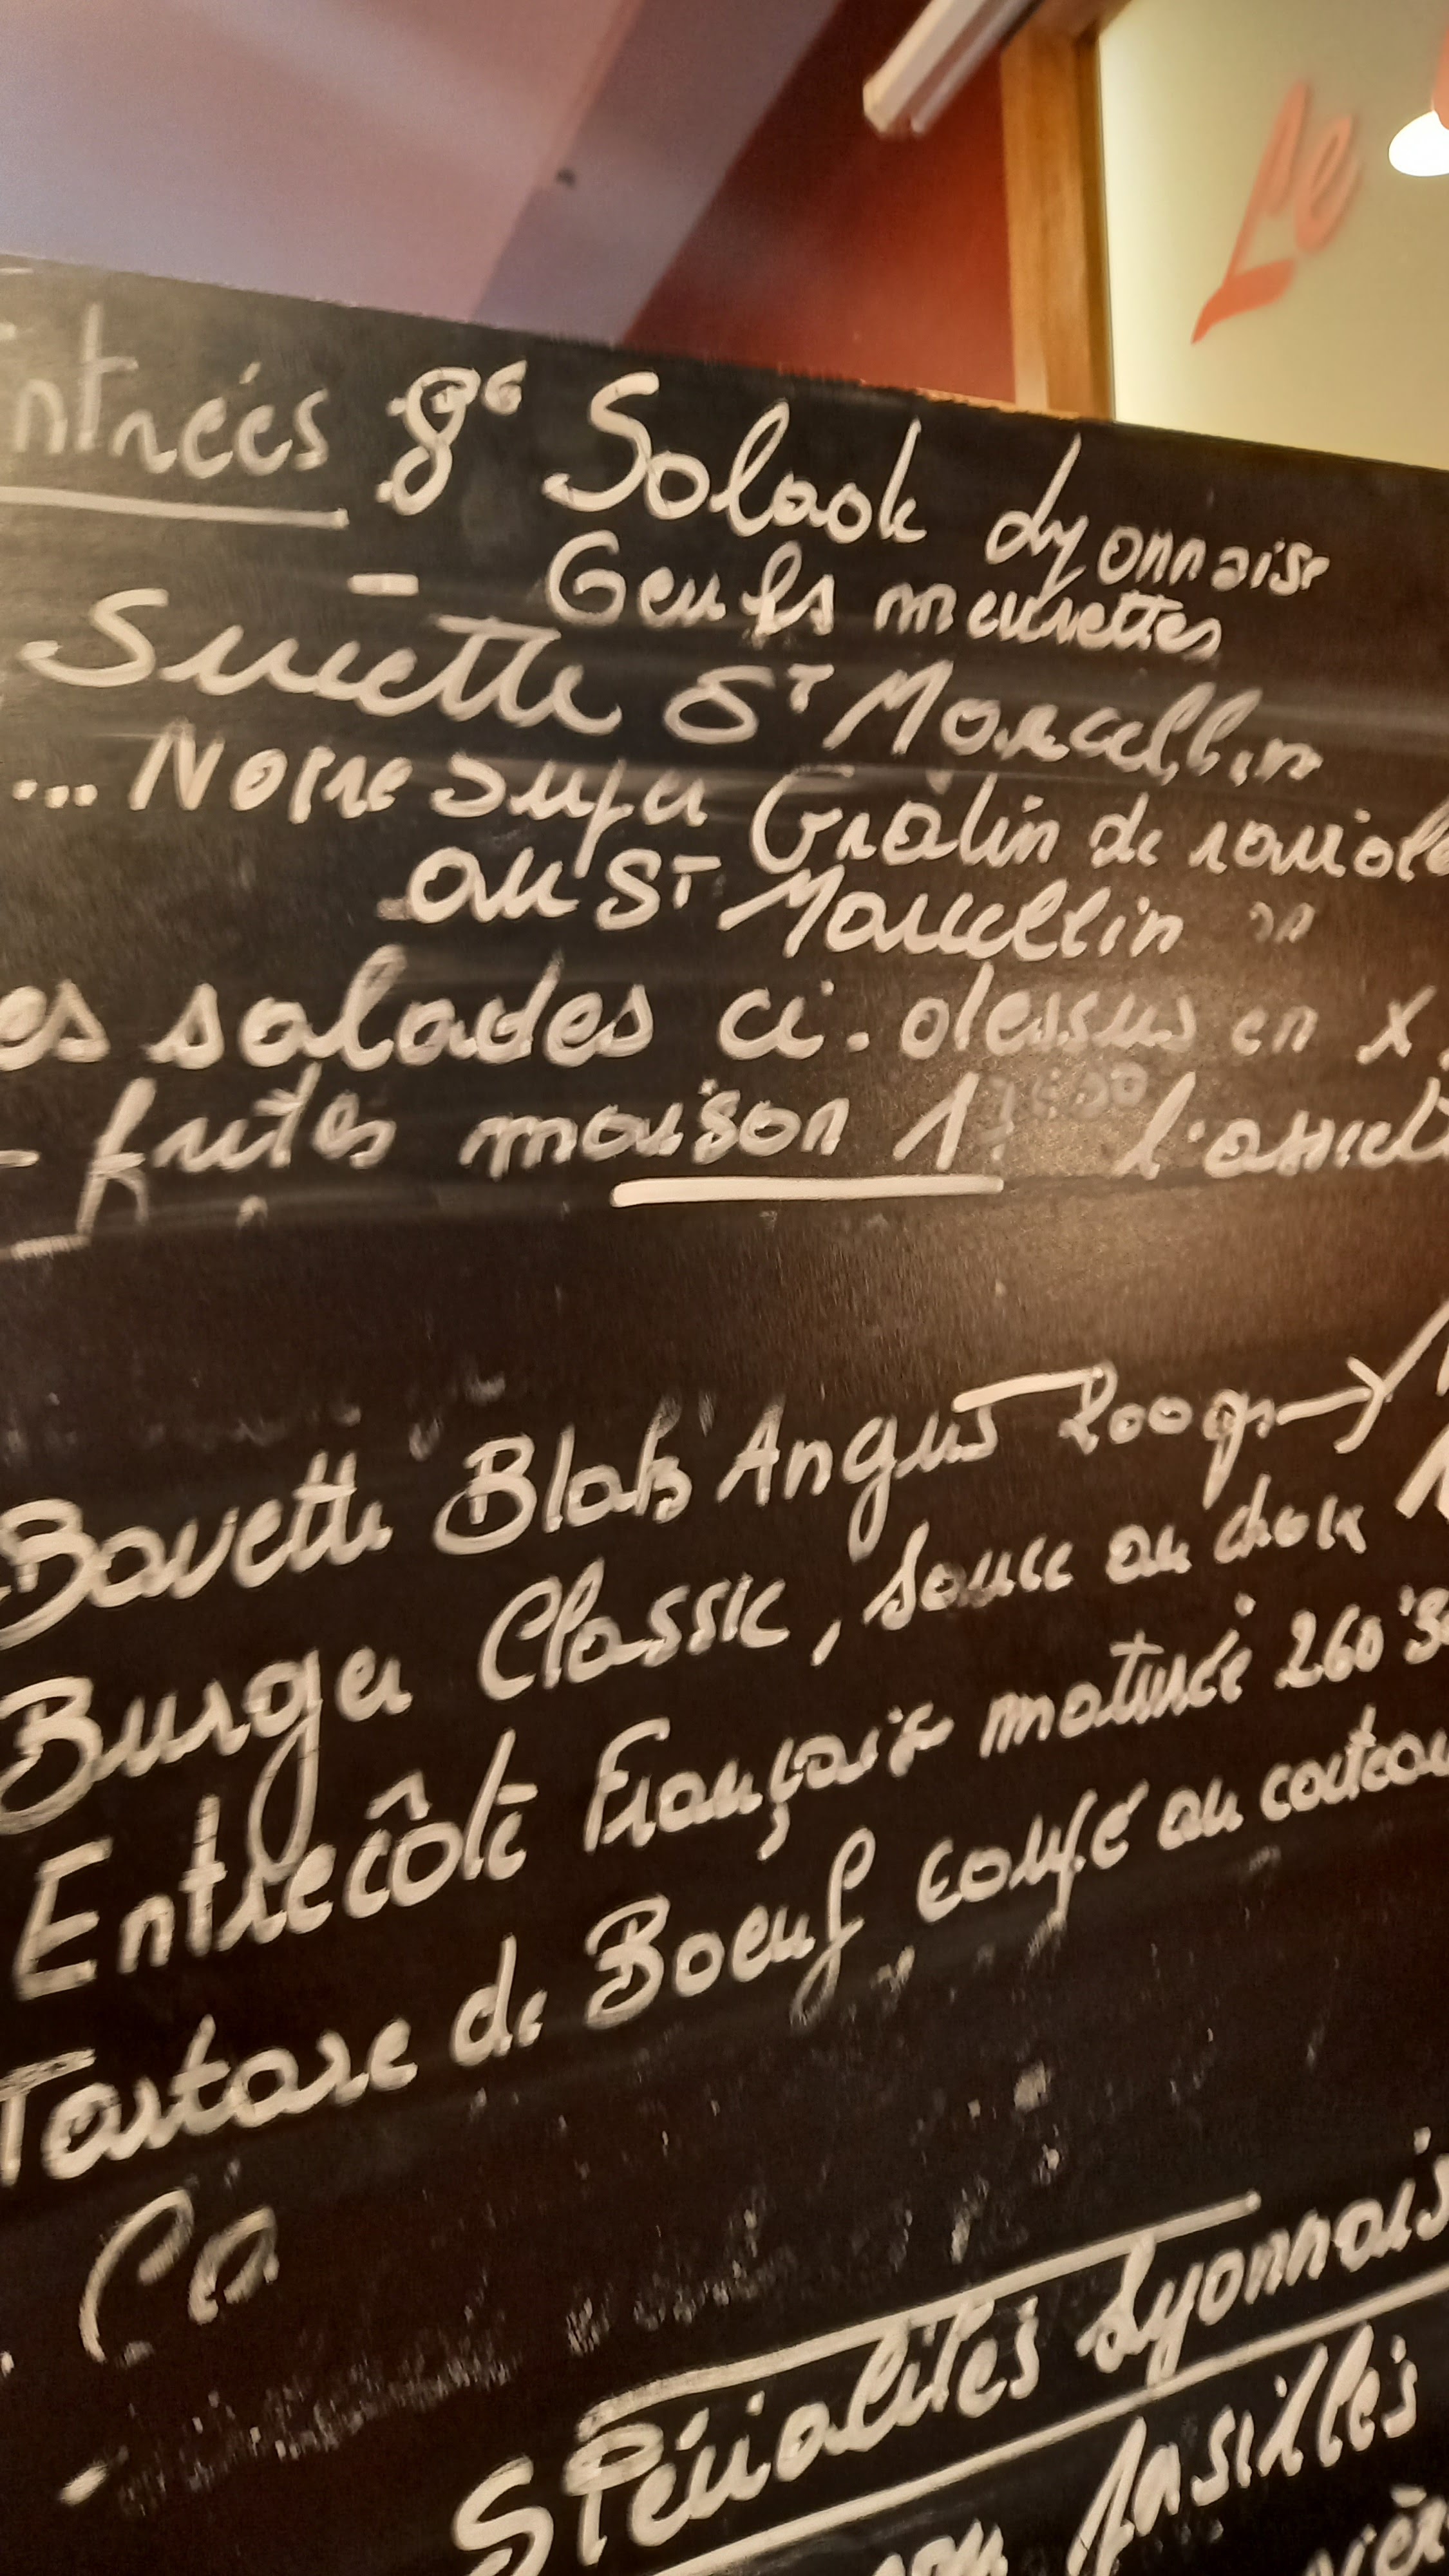 Le
ntrées 8€ Salade Lyonnaise
- Oeufs meurettes
Sucette ST Marcellin
... Notre super Gratin de raviole
au ST Marcellin
es salades ci-dessus en X
frites maison l'assiet
Bavette Blak Angus 200 gr →
Burger Classic, sauce au choix 1
Entrecôte Française maturée 260
Tartare de Boeuf, coupé au couteau
Spécialités Lyonnais
persillés